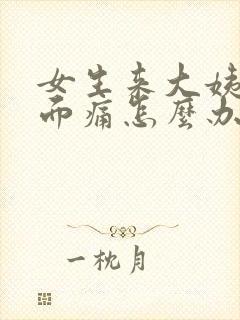 女生来大姨
而痛怎麼办
一枕月